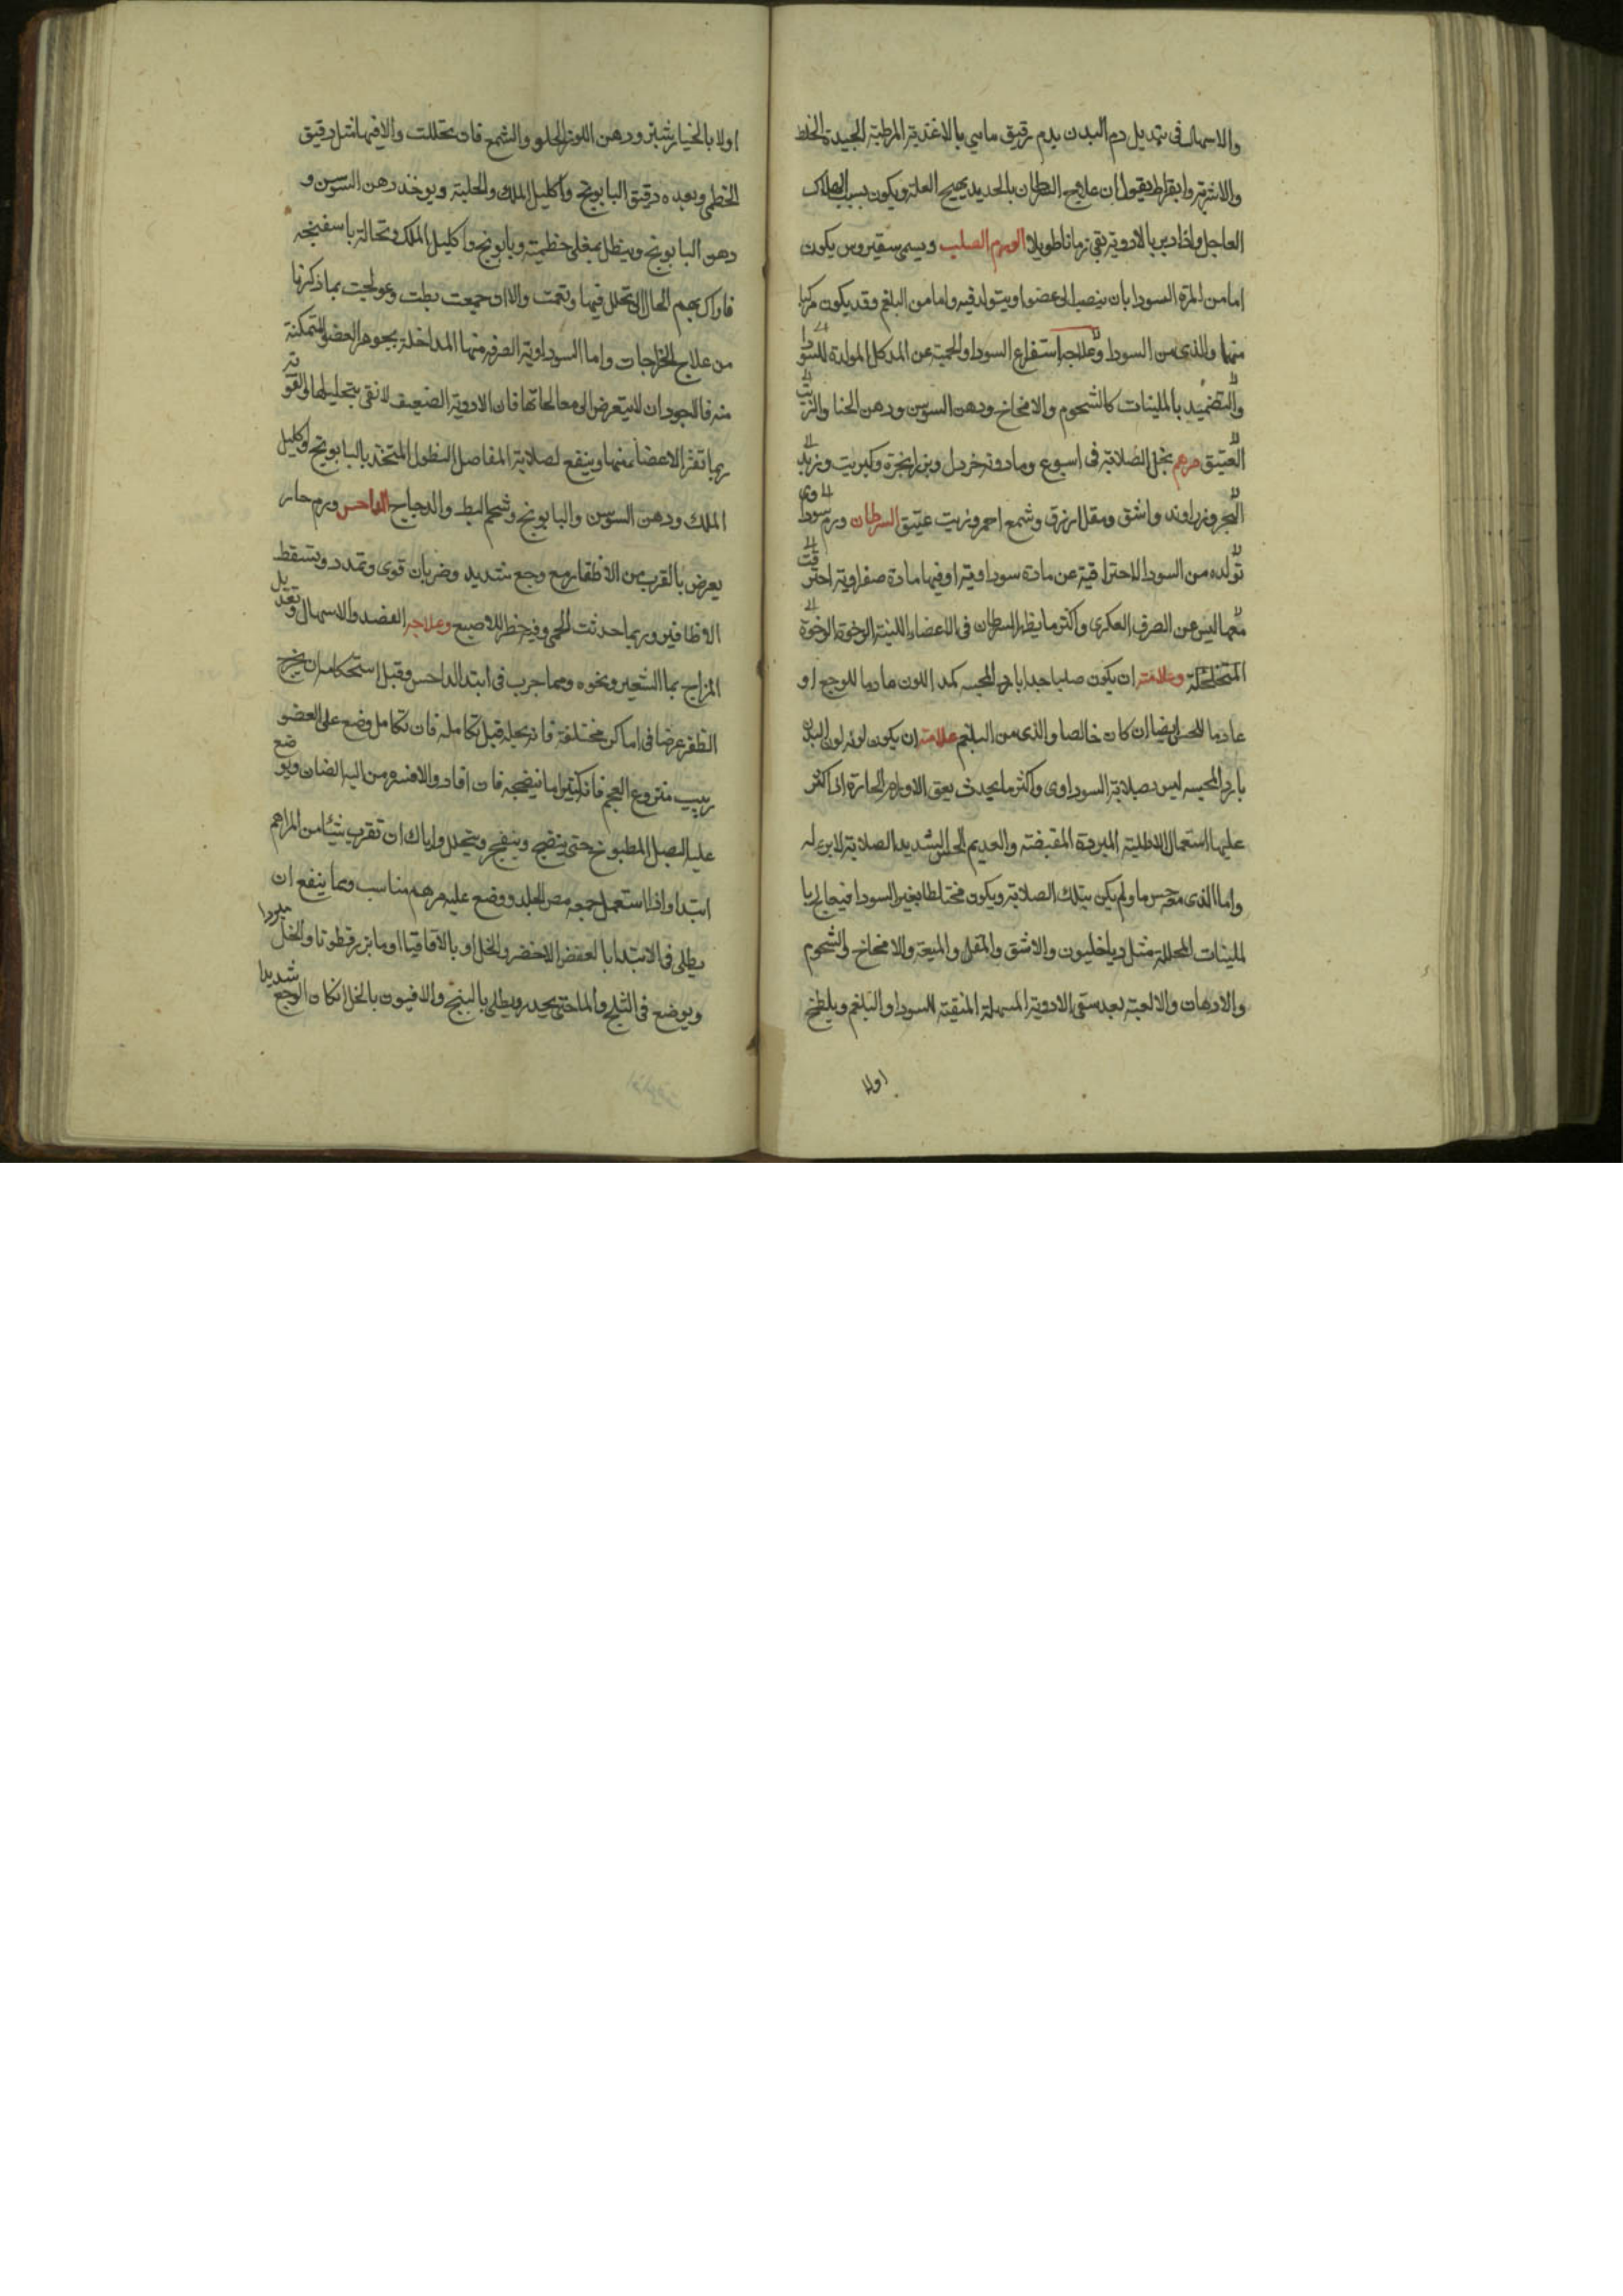 والاسهال فى تبديل دم البدن بدم رقيق مايى بالاغذية المرطبة الجيدة الخلط
والاشربة وابقراط يقول ان علاج السرطان بالحديد يهيج العلة ويكون بسبب الهلاك
العاجل واذا دبر بالادوية بقى زمانا طويلا الورم الصلب ويسمى سقيروس يكون
اما من المرة السودا بان ينصب الى عضو او يتولد فيه واما من البلغم وقد يكون مركبا
منها والذى من السودا وعلاجه استفراغ السودا والحمية عن المدكل المولدة للسودا
والتضميد بالملينات كالشحوم والامخاخ ودهن السوسن ودهن الحنا والزيت
العتيق مرهم يحل الصلابة فى اسبوع ومادونه خردل وبزر انجرة وكبريت وزبد
البحر وزراوند واشق ومقل ازرق وشمع احمر وزيت عتيق السرطان ورم سوداوى
تولده من السودا الاحتراقية عن مادة سوداوية او فيها مادة صفراوية احترقت
معها ليس عن الصرف العكرى واكثر ما يظهر السرطان فى الاعضاء اللينة الرخوة الرخوة
المتخلخلة وعلامته ان يكون صلبا جدا بارد المجسه كمد اللون عادما للوجع او
عادما للحس ايضا ان كان خالصا والذى من البلغم علامته ان يكون لونه لون البدن
بارد المجسه ليس بصلابة السوداوى واكثر ما يحدث بعق الاورام الحارة اذا اكثر
عليها استعمال الاطلية المبردة المقبضة والعديم الحس الشديد الصلابة لا برء له
واما الذى معه حس ما ولم يكن بتلك الصلابة ويكون مختلطا بغير السودا فيعالج با
لملينات المحللة مثل دياخليون والاشق والمقل والميعة والامخاخ والشحوم
والادهان والالعبة بعد سقى الادوية المسهلة المنقية للسودا والبلغم ويلطخ
اولا
اولا بالخيار شنبر ودهن اللوز الحلو والشمع فان تحللت والا فبها مثل دقيق
الخطمى وبعده دقيق البابونج واكليل الملك والحلبة ويوخذ دهن السوسن و
دهن البابونج وينطل بمغلى خطمية وبابونج واكليل الملك ونخالة باسفنجه
من علاج الخراجات واما السوداوية الصرفه منها المداخلة بجوهر العضو المتمكنة
منه فالاجود ان لا يتعرض الى معالجاتها فان الادوية الضعيفه لا تقى بتحليلها والقوية
ربما تفزز الاعضا منها وينفع لصلابة المفاصل النطول المتخذ بالبابونج واكليل
الملك ودهن السوسن والبابونج وشحم البط والدجاج الداحس ورم حار
يعرض بالقرب من الاظفار مع وجع شديد وضربان قوى وتمدد وتسقط
الاظافير وربما احدثت الحمى وفيه خطر للاصبع وعلاجه الفصد والاسهال وتعديل
المزاج بما الشعير ونحوه ومما جرب فى ابتدا الداحس وقبل استحكامه ان يخرج
الظفر عرضا فى اماكن مختلفة فانه يحيله قبل تكامله فان تكامل وضع على العضو
زبيب منزوع العجم فانه كثيرا ما ينضجه فان افاد والا فشرم من اليه الضان ويوضع
عليه البصل المطبوخ حتى ينضج وينفجر ويتحلل واياك ان تقرب شيئا من المراهم
ابتدا واذا استعمل معه مص الجلد ووضع عليه مرهم مناسب ومما ينفع ان
يطلى فى الابتدا بالعفص الاخضر والخل او بالاقاقيا او ما بزر قطونا والخل مبردا
ويوضع فى الثلج والماحتى يحدر ويطلى بالبنج والافيون بالخل ان كان الوجع شديدا